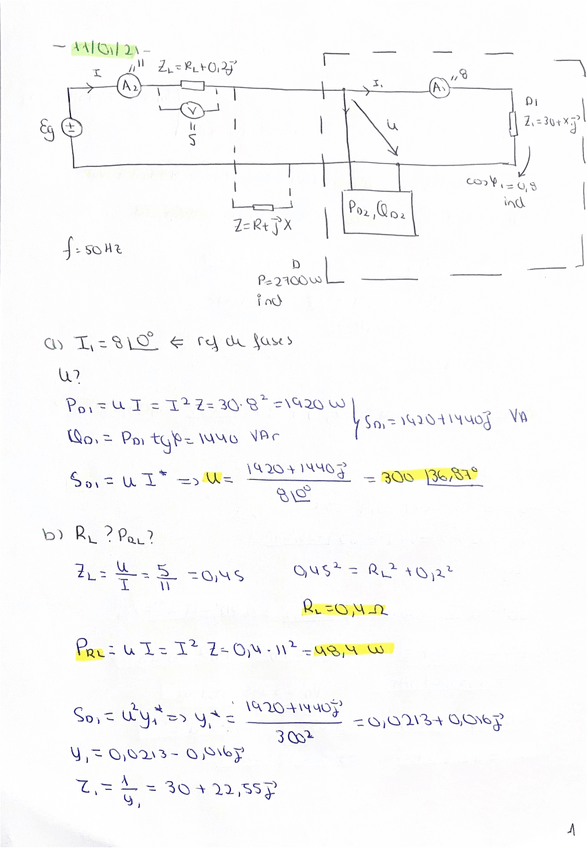 - 11/01/21 -
I
A2 "11
ZL=RL+0,2j
V
"
5
Eg
I1
A1 "8
u
D1
Z1=30+Xj
cosφ1=0,8
ind
PD2, QD2
Z=R+jX
f=50 Hz
D
P=2700W
ind
a) I1=8∠0° ⇐ ref de fases
u?
PD1=uI=I²Z=30·8²=1920 W
QD1=PD1 tgφ=1440 VAr
SD1=1920+1440j VA
SD1=uI* => u= (1920+1440j)/(8∠0°) = 300 ∠36,87°
b) RL? PRL?
ZL= u/I = 5/11 =0,45
0,45²=RL²+0,2²
RL=0,4Ω
PRL=uI=I²Z=0,4·11²=48,4 W
SD1=u²y1* => y1*= (1920+1440j)/300² =0,0213+0,016j
y1=0,0213-0,016j
Z1= 1/y1 = 30+22,55j
1